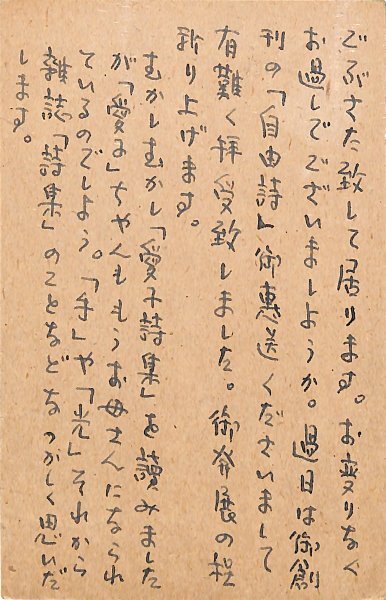 ごぶさた致して居ります。お変りなく
お過しでございましようか。過日は御創
刊の「自由詩」御惠送くださいまして
有難く拝受致しました。御発展の程
祈り上げます。
むかしむかし「愛子詩集」を讀みました
が「愛子」ちやんももうお母さんになられ
ているのでしよう。「手」や「光」それから
雑誌「詩集」のことなどなつかしく思いだ
します。